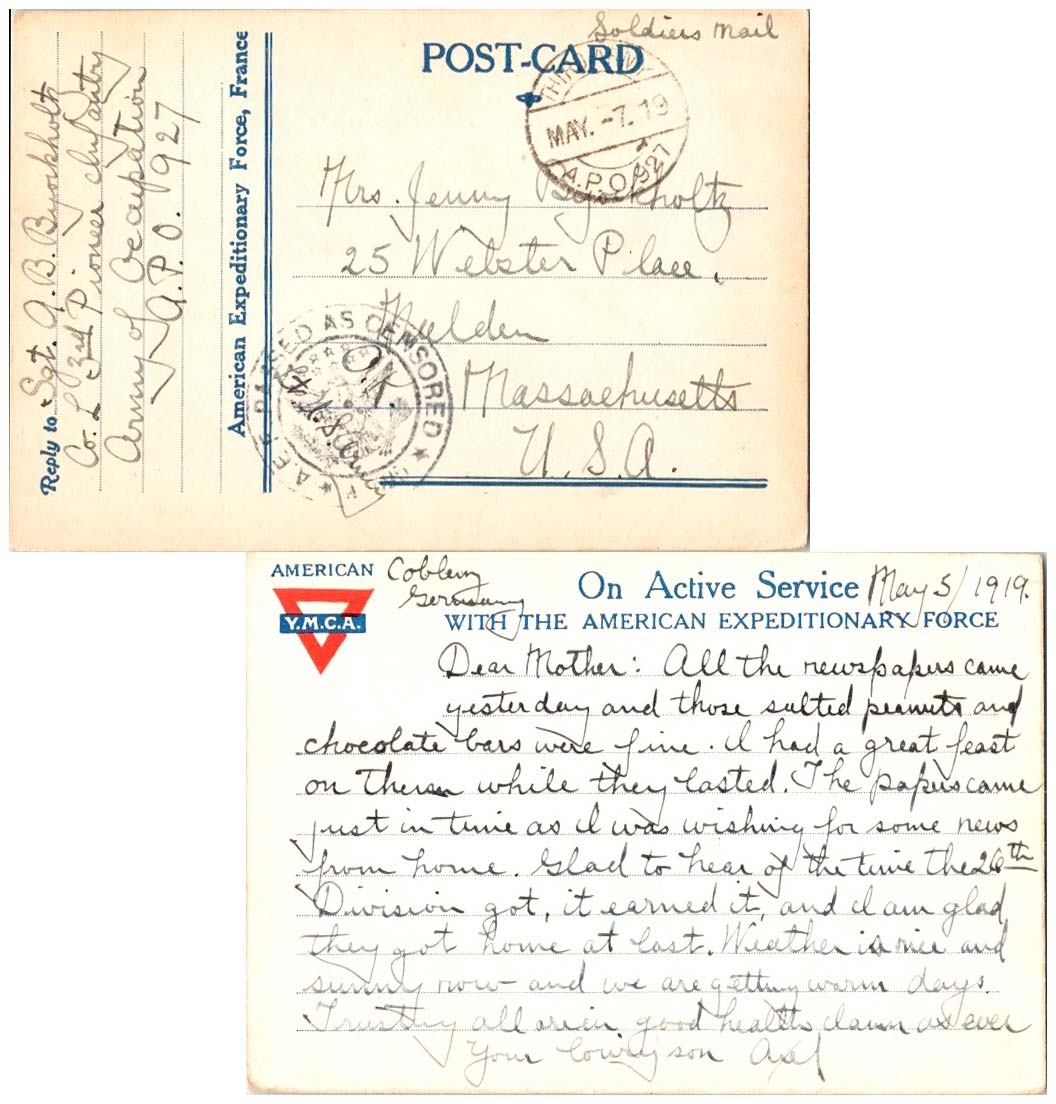 Soldiers Mail
POST-CARD
THIRD ARMY
MAY. -7. 19
A.P.O. 927
Mrs. Jenny Bjorkholtz
25 Webster Place,
Malden
Massachusetts
U.S.A.
A.E.F. PASSED AS CENSORED
O.K.
Reply to Sgt. A. B. Bjorkholtz
Co. L 3rd Pioneer Infantry
Army of Occupation
A.P.O. 927
American Expeditionary Force, France
AMERICAN
Y.M.C.A.
Coblenz
Germany
On Active Service May 5/1919.
WITH THE AMERICAN EXPEDITIONARY FORCE
Dear Mother: All the newspapers came
yesterday and those salted peanuts and
chocolate bars were fine. I had a great feast
on them while they lasted. The papers came
just in time as I was wishing for some news
from home. Glad to hear of the time the 26th
Division got, it earned it, and I am glad
they got home at last. Weather is nice and
sunny now and we are getting warm days.
Trusting all are in good health I am as ever
Your loving son Axel